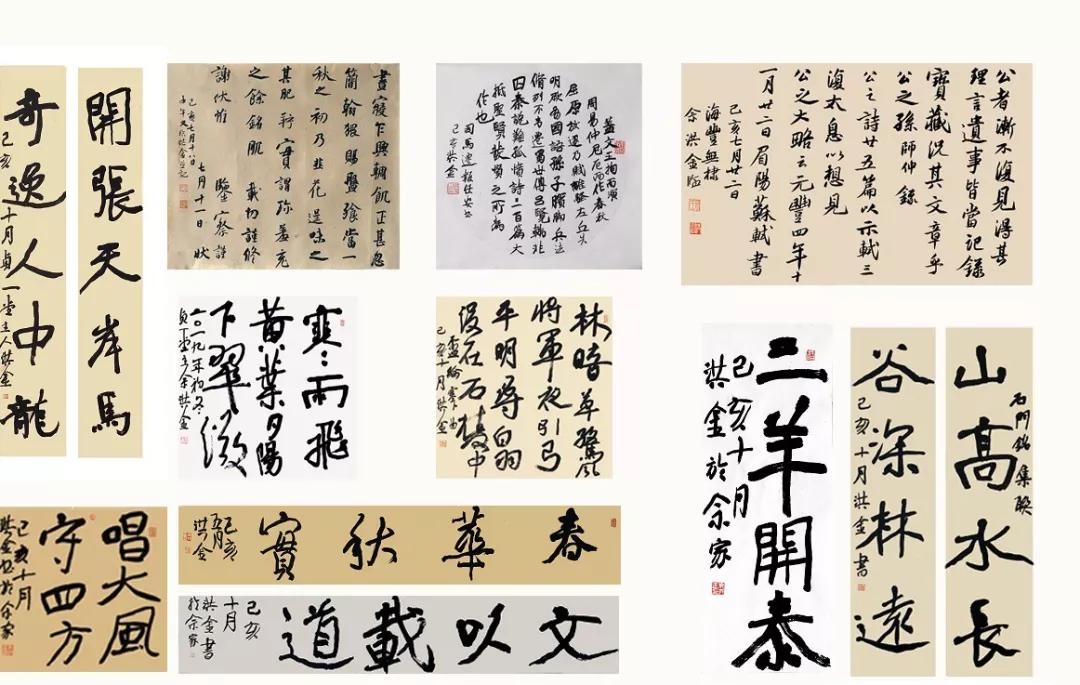 開張天岸馬
奇逸人中龍
己亥十月貞一堂主人洪金
晝寢乍興輖飢正甚忽
簡翰猥賜盤飧當一
秋之初乃韭花逞味之
其肥羜實謂珍羞充
之餘銘肌載切謹修
謝伏惟鑒察謹
狀
七月十一日
己亥七月十八日
蓋文王拘而演
周易仲尼厄而作春秋
屈原放逐乃賦離騷左丘失
明厥有國語孫子臏腳兵法
脩列不韋遷蜀世傳呂覽韓非
囚秦說難孤憤詩三百篇大
抵聖賢發憤之所為
作也
司馬遷報任安書
己亥洪金
公者漸不復見得其
理言遺事皆當記錄
寶藏況其文章乎
公之孫師仲錄
公之詩廿五篇以示軾三
復太息以想見
公之大略云元豐四年十
一月廿二日眉陽蘇軾書
己亥七月廿二日
海豐無棣
余洪金臨
寒寒雨飛
黃葉夕陽
下翠微
二〇一九年初冬
余洪金
林暗草驚風
將軍夜引弓
平明尋白羽
沒在石棱中
盧綸塞下曲
己亥十月洪金
三羊開泰
己亥十月
洪金於余家
山高水長
石門銘集聯
谷深林遠
己亥十月洪金書
唱大風
守四方
己亥十月
洪金書於余家
春華秋實
己亥
五月
洪金
文以載道
己亥
十月
洪金書
於余家